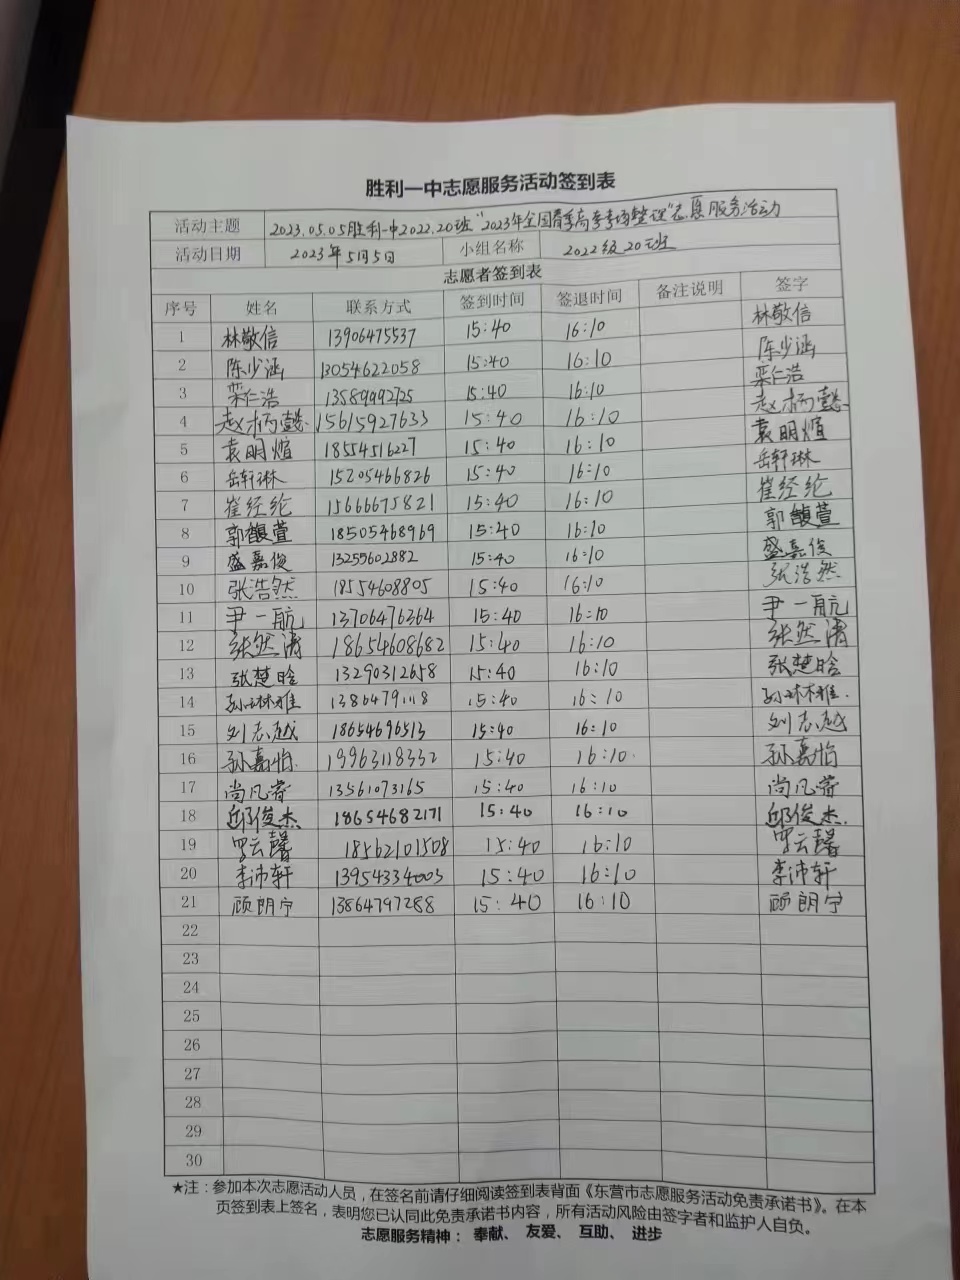 胜利一中志愿服务活动签到表
活动主题 2023.05.05胜利一中2022.20班"2023年全国春季高考考场整理"志愿服务活动
活动日期 2023年5月5日 小组名称 2022级20班
志愿者签到表
序号 姓名 联系方式 签到时间 签退时间 备注说明 签字
1 林敬信 13906475537 15:40 16:10 林敬信
2 陈少涵 13054622058 15:40 16:10 陈少涵
3 栾仁浩 13589992725 15:40 16:10 栾仁浩
4 赵柄懿 15615927633 15:40 16:10 赵柄懿
5 袁明煊 18554516227 15:40 16:10 袁明煊
6 岳轩琳 15205466826 15:40 16:10 岳轩琳
7 崔经纶 15666675821 15:40 16:10 崔经纶
8 郭馥萱 18505468969 15:40 16:10 郭馥萱
9 盛嘉俊 13255602882 15:40 16:10 盛嘉俊
10 张浩然 18554608805 15:40 16:10 张浩然
11 尹一航 13706476364 15:40 16:10 尹一航
12 张然清 18654608682 15:40 16:10 张然清
13 张楚晗 13290312658 15:40 16:10 张楚晗
14 孙琳雅 13864791118 15:40 16:10 孙琳雅
15 刘志越 18654696513 15:40 16:10 刘志越
16 孙嘉怡 19963118332 15:40 16:10 孙嘉怡
17 尚凡蓉 13561073165 15:40 16:10 尚凡蓉
18 邱俊杰 18654682171 15:40 16:10 邱俊杰
19 罗云馨 18562101508 15:40 16:10 罗云馨
20 李沛轩 13954334003 15:40 16:10 李沛轩
21 顾朗宁 13864797288 15:40 16:10 顾朗宁
22
23
24
25
26
27
28
29
30
★注：参加本次志愿活动人员，在签名前请仔细阅读签到表背面《东营市志愿服务活动免责承诺书》。在本
页签到表上签名，表明您已认同此免责承诺书内容，所有活动风险由签字者和监护人自负。
志愿服务精神： 奉献、 友爱、 互助、 进步